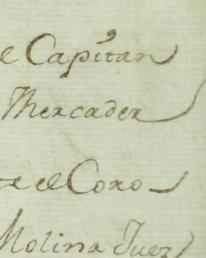 e Capitan
Mercader
te el Coro
Molina Juez